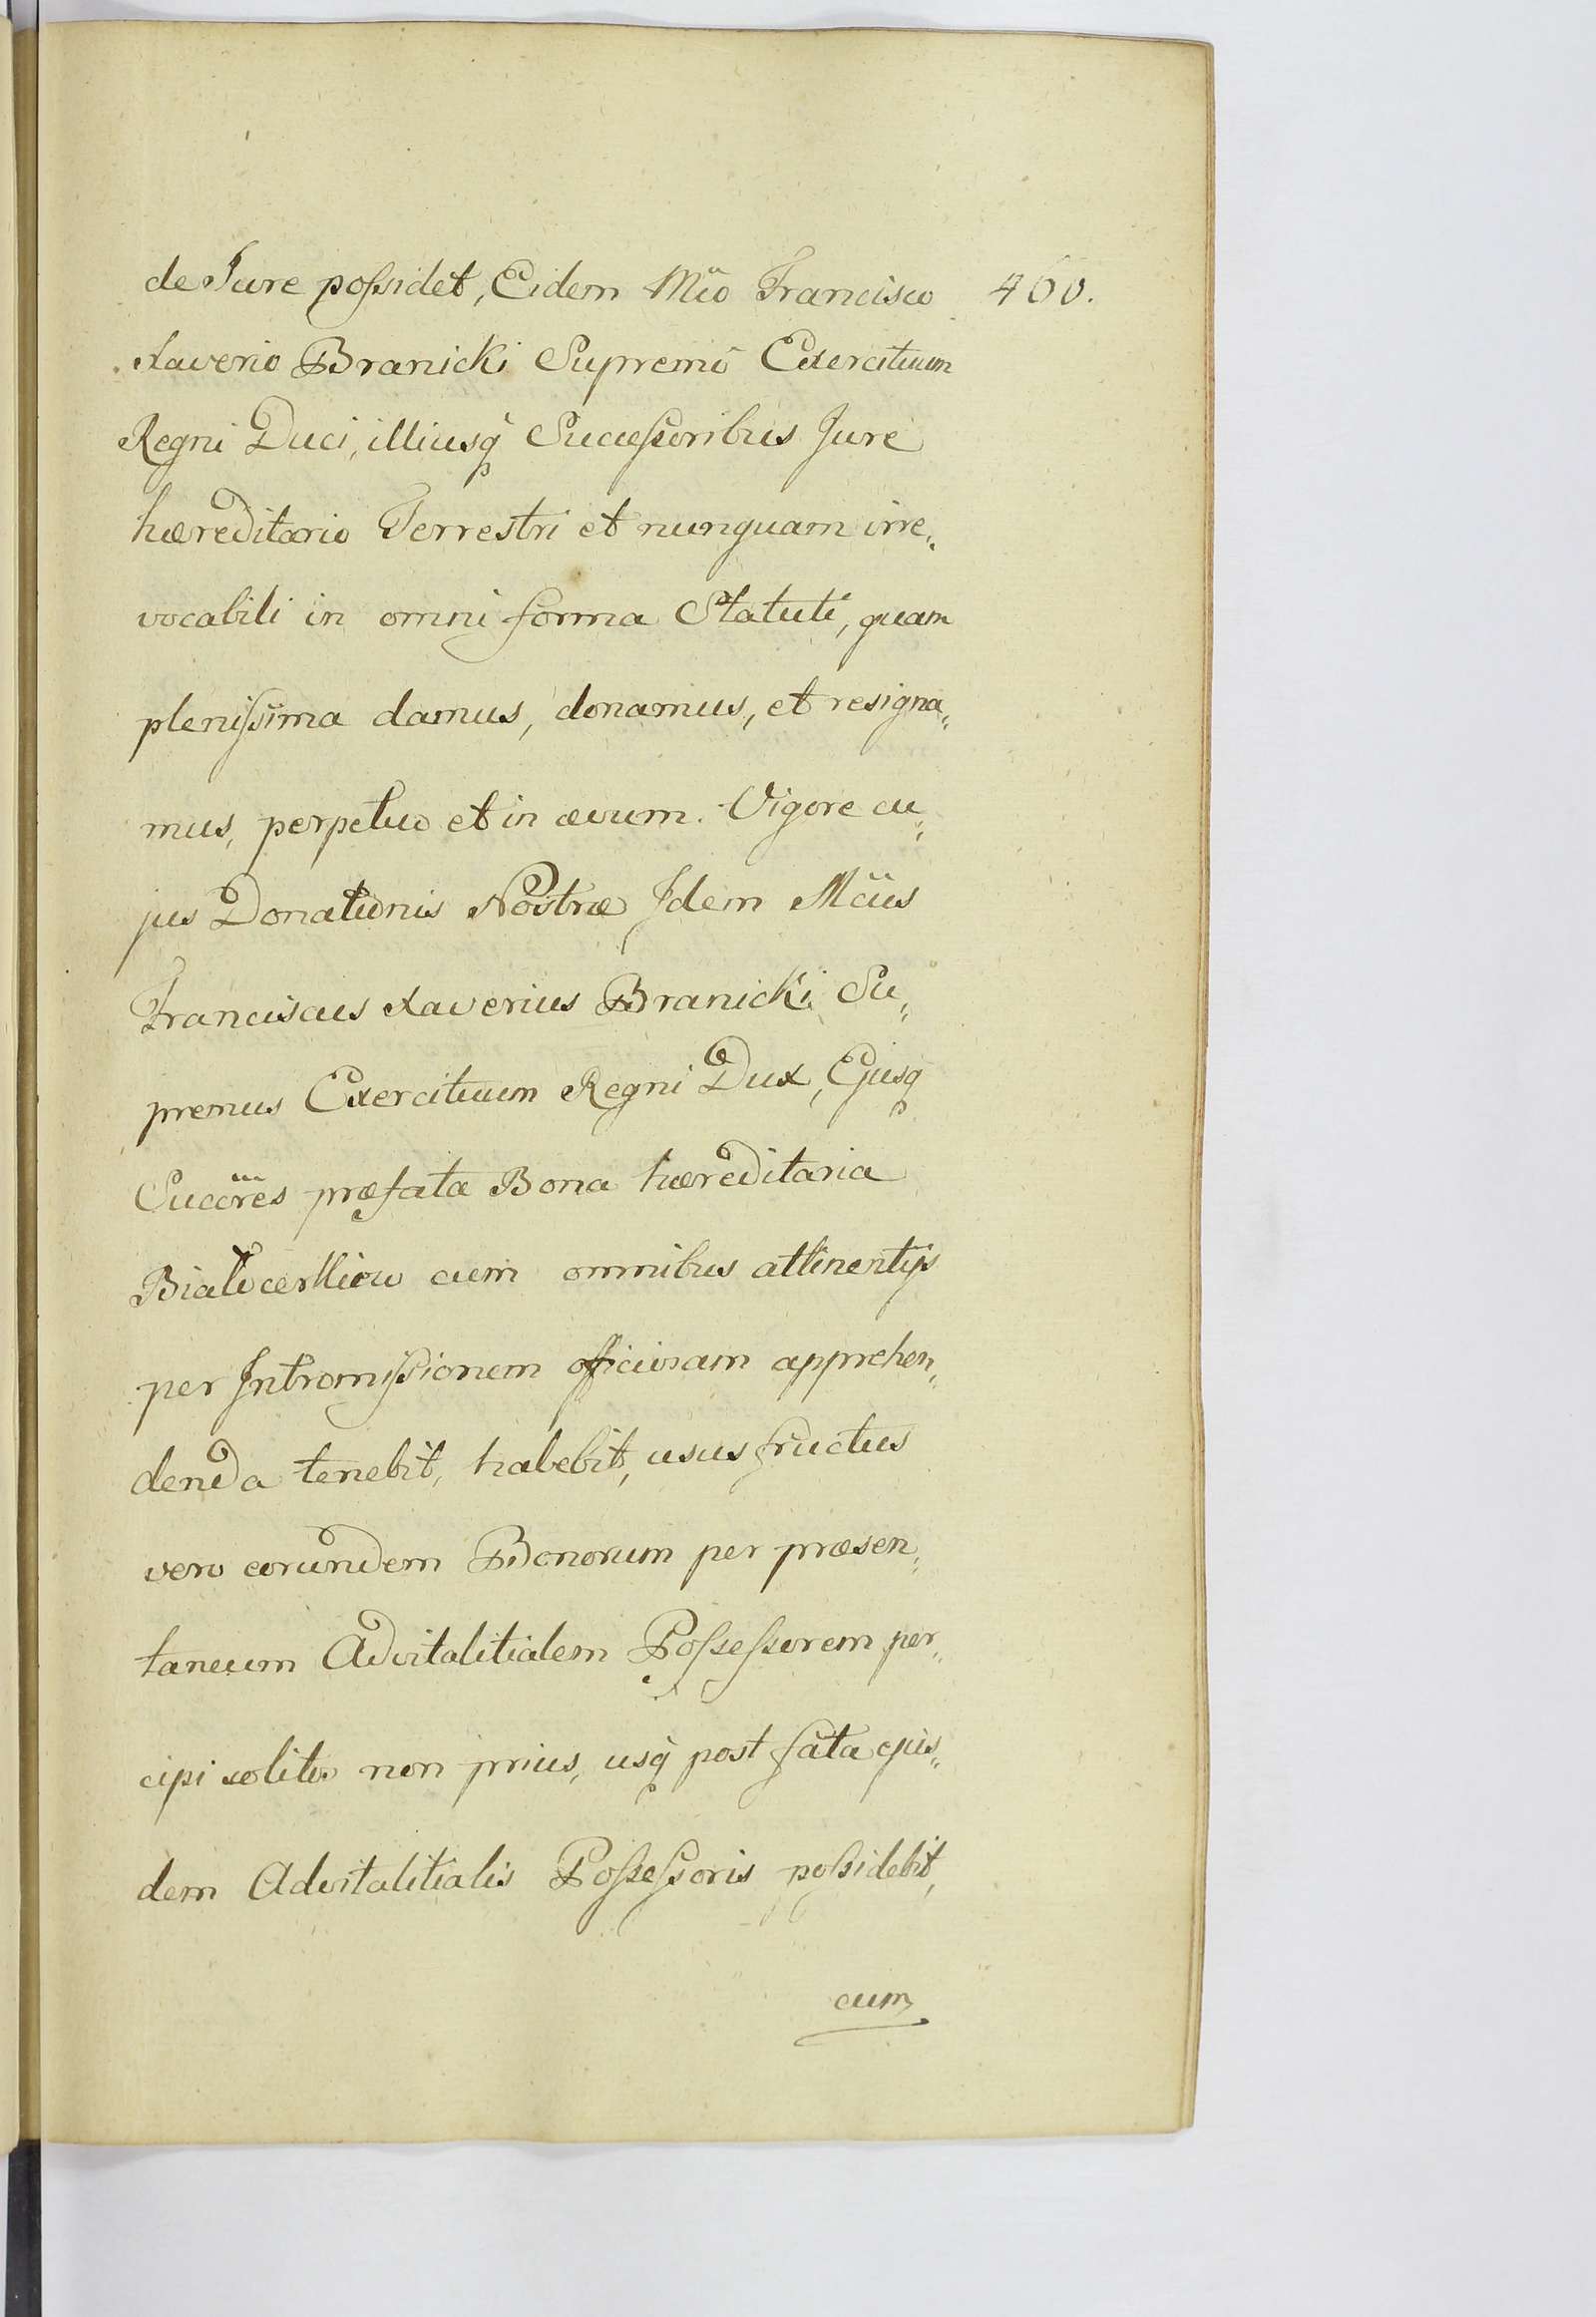 de Jure possidet, Eidem Mco Francisco 460.
Xaverio Branicki Supremo Exercituum
Regni Duci, illiusq Successoribus Jure
hæreditario Terrestri et nunquam irre„
vocabili in omni forma Statuti, quam
plenissima damus, donamus, et resigna„
mus, perpetuo et in ævum. Vigore cu„
jus Donationis Nostræ Idem Mcus
Franciscus Xaverius Branicki Su„
premus Exercituum Regni Dux, Ejusq
Succores præfata Bona hæreditaria
cum omnibus attinentijs
per Intromissionem officiosam apprehen„
denda tenebit, habebit, usus fructus
vero eorundem Bonorum per præsen„
taneum Advitalitialem Possessorem per„
cipi solitos non prius, usq post fata ejus„
dem Advitalitialis Possessoris possidebit,
cum